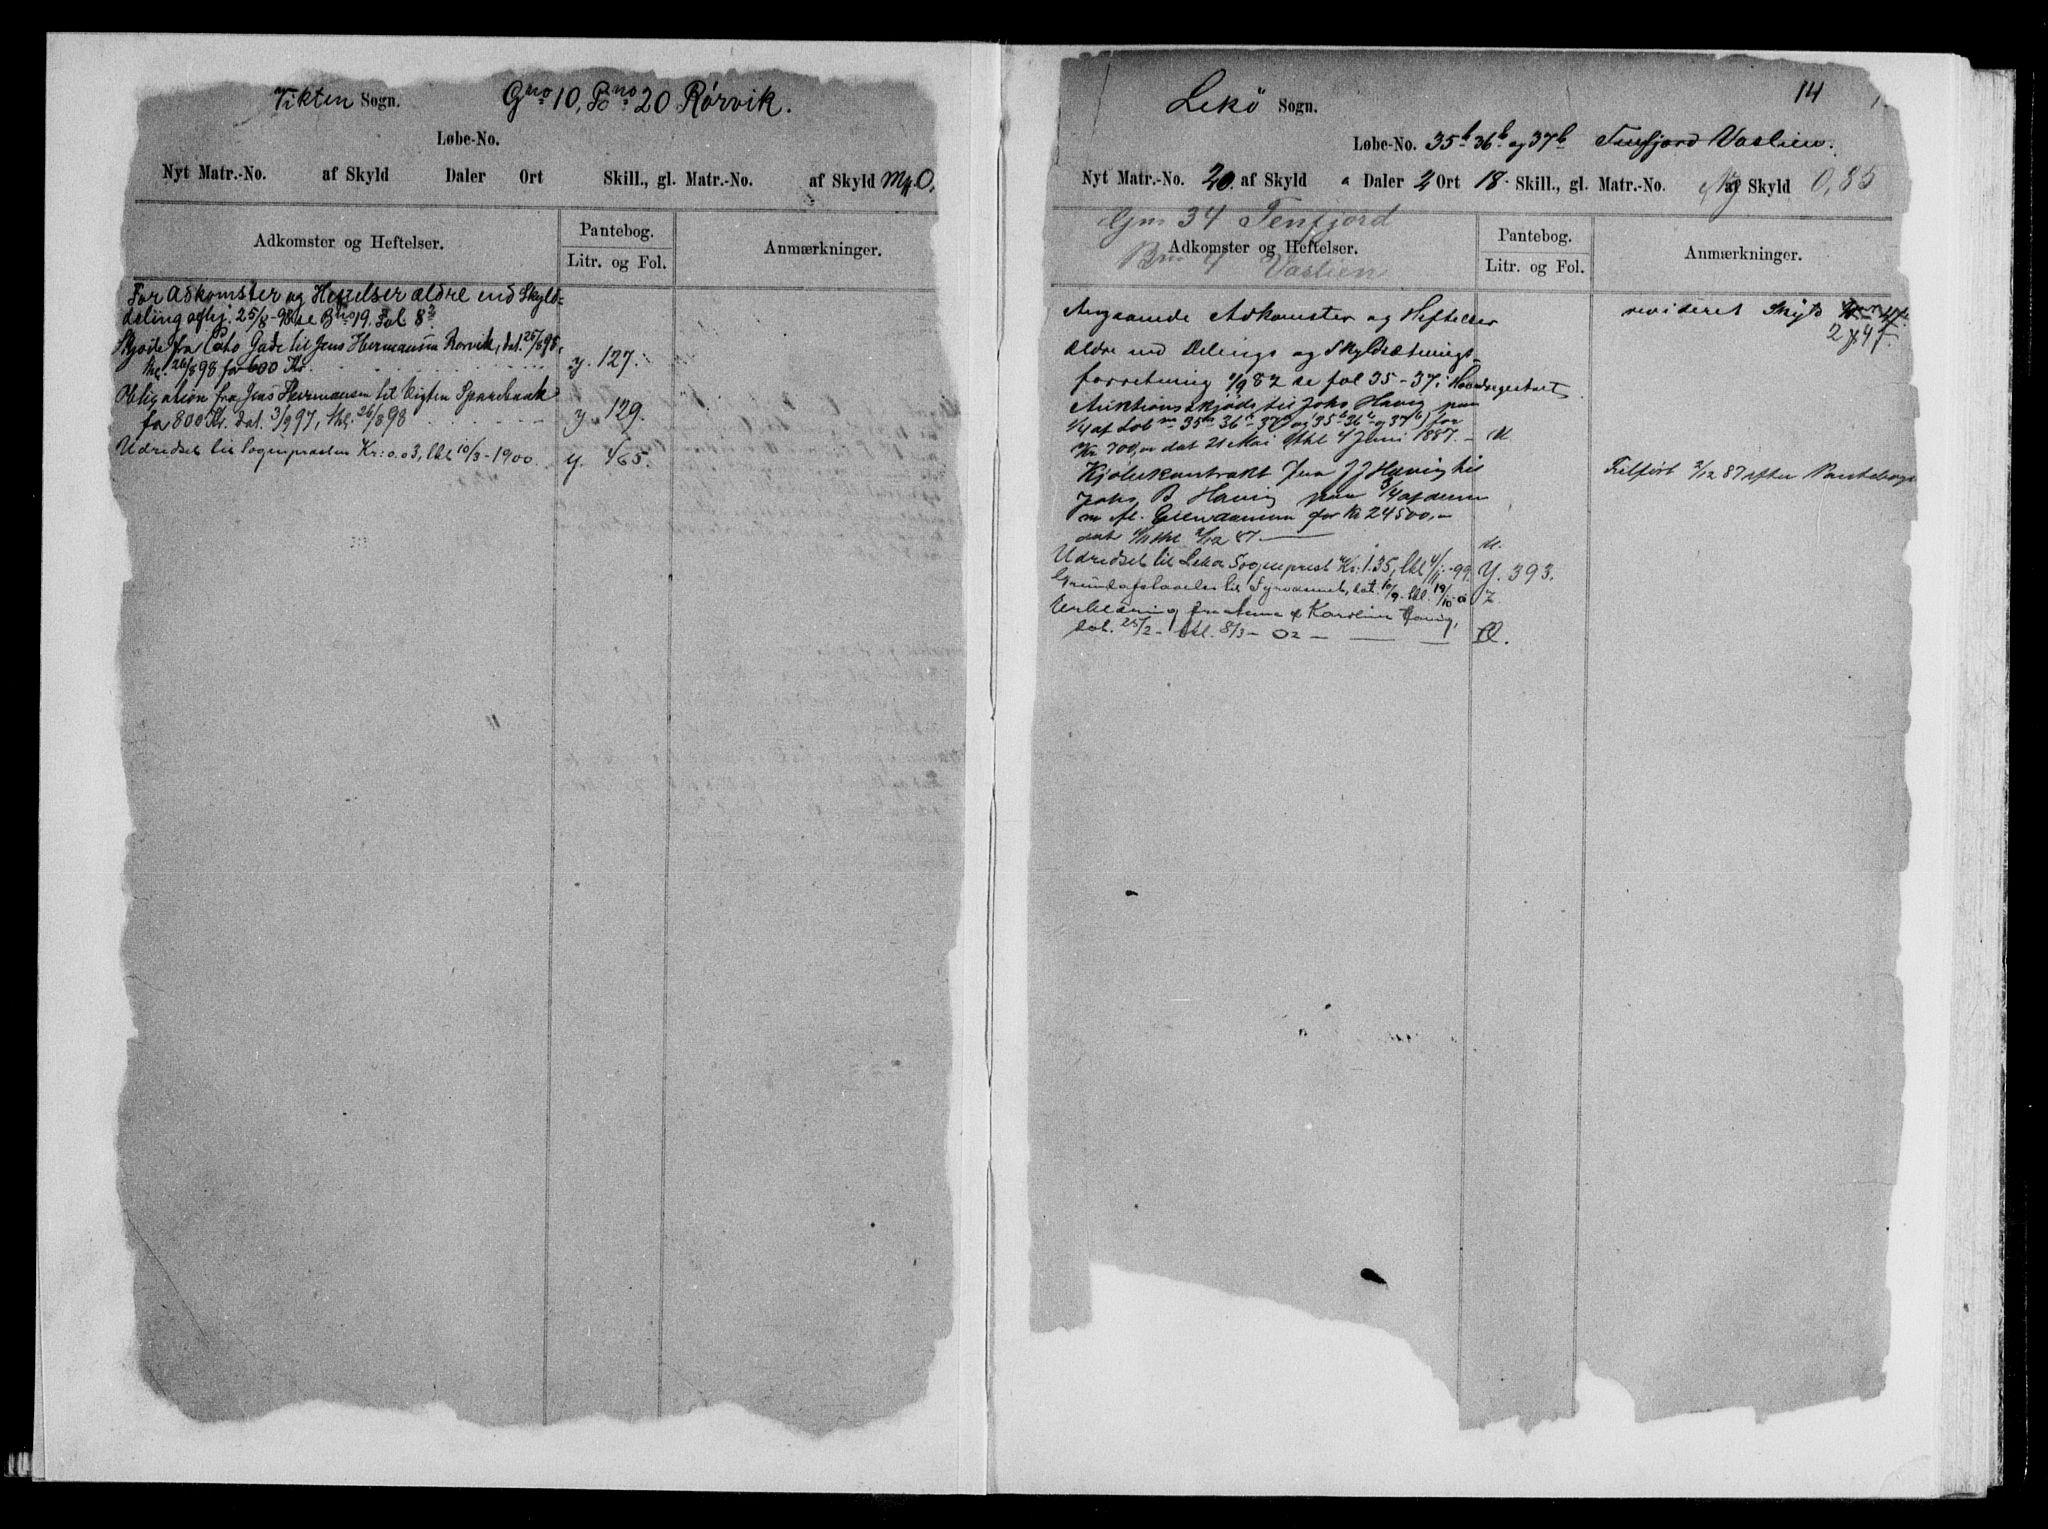 Vikten Sogn. Gno 10, Bno 20 Rørvik.
Løbe-No.
Nyt Matr.-No. af Skyld Daler Ort Skill., gl. Matr.-No. af Skyld Mk 0,
Adkomster og Heftelser.
Pantebog.
Litr. og Fol.
Anmærkninger.
For Adkomster og Heftelser ældre end Skyld-
deling aflyj. 25/8-98 se Bno 19. Fol 8
Skjøde fra Cato Gade til Jens Hermansen Rørvik, dat. 25/8 98,
thl. 26/8 98 for 600 Kr. y. 127.
Obligation fra Jens Hermansen til Vigten Sparebank
for 800 Kr. dat. 3/9 97, thl. 26/8 98 y. 129.
Udredsel til Sognepresten Kr: 0.03, thl 10/3-1900. y. 465.
14
Lekø Sogn.
Løbe-No. 35b 36b og 37b Tenfjord Vaslien.
Nyt Matr.-No. 20. af Skyld " Daler 2 Ort 18 Skill., gl. Matr.-No. af Skyld 0,85
Gm 34 Tenfjord
Adkomster og Heftelser.
Bm 4 Vaslien
Pantebog.
Litr. og Fol.
Anmærkninger.
Angaaende Adkomster og Heftelser
ældre end Delings og Skyldsætnings-
forretning 82 se fol 35-37 i
revideret Skyld
Auktionsskjøde til Johs Havig paa
1/4 af Lob no 35 36 37 og 35b 36b og 37b) for
Kr 700, dat 21 Mai thl 4 Juni 1887. -
Kjøbekontrakt fra J J Havig til
Johs B Havig paa 3/4 af denne
m fl. Eiendomme for Kr 24500,-
dat thl 2/12 87
Tilført 2/12 87 efter
Udredsel til Lekø Sogneprest Kr: 1.35, thl 4/11-99. Y. 393.
Grundafstaaelse til Fyrvæsenet, dat. 10/9- thl. 19/10 Z
Erklæring fra Anna & Karoline Havig,
dat. 25/2- thl. 8/3-02-